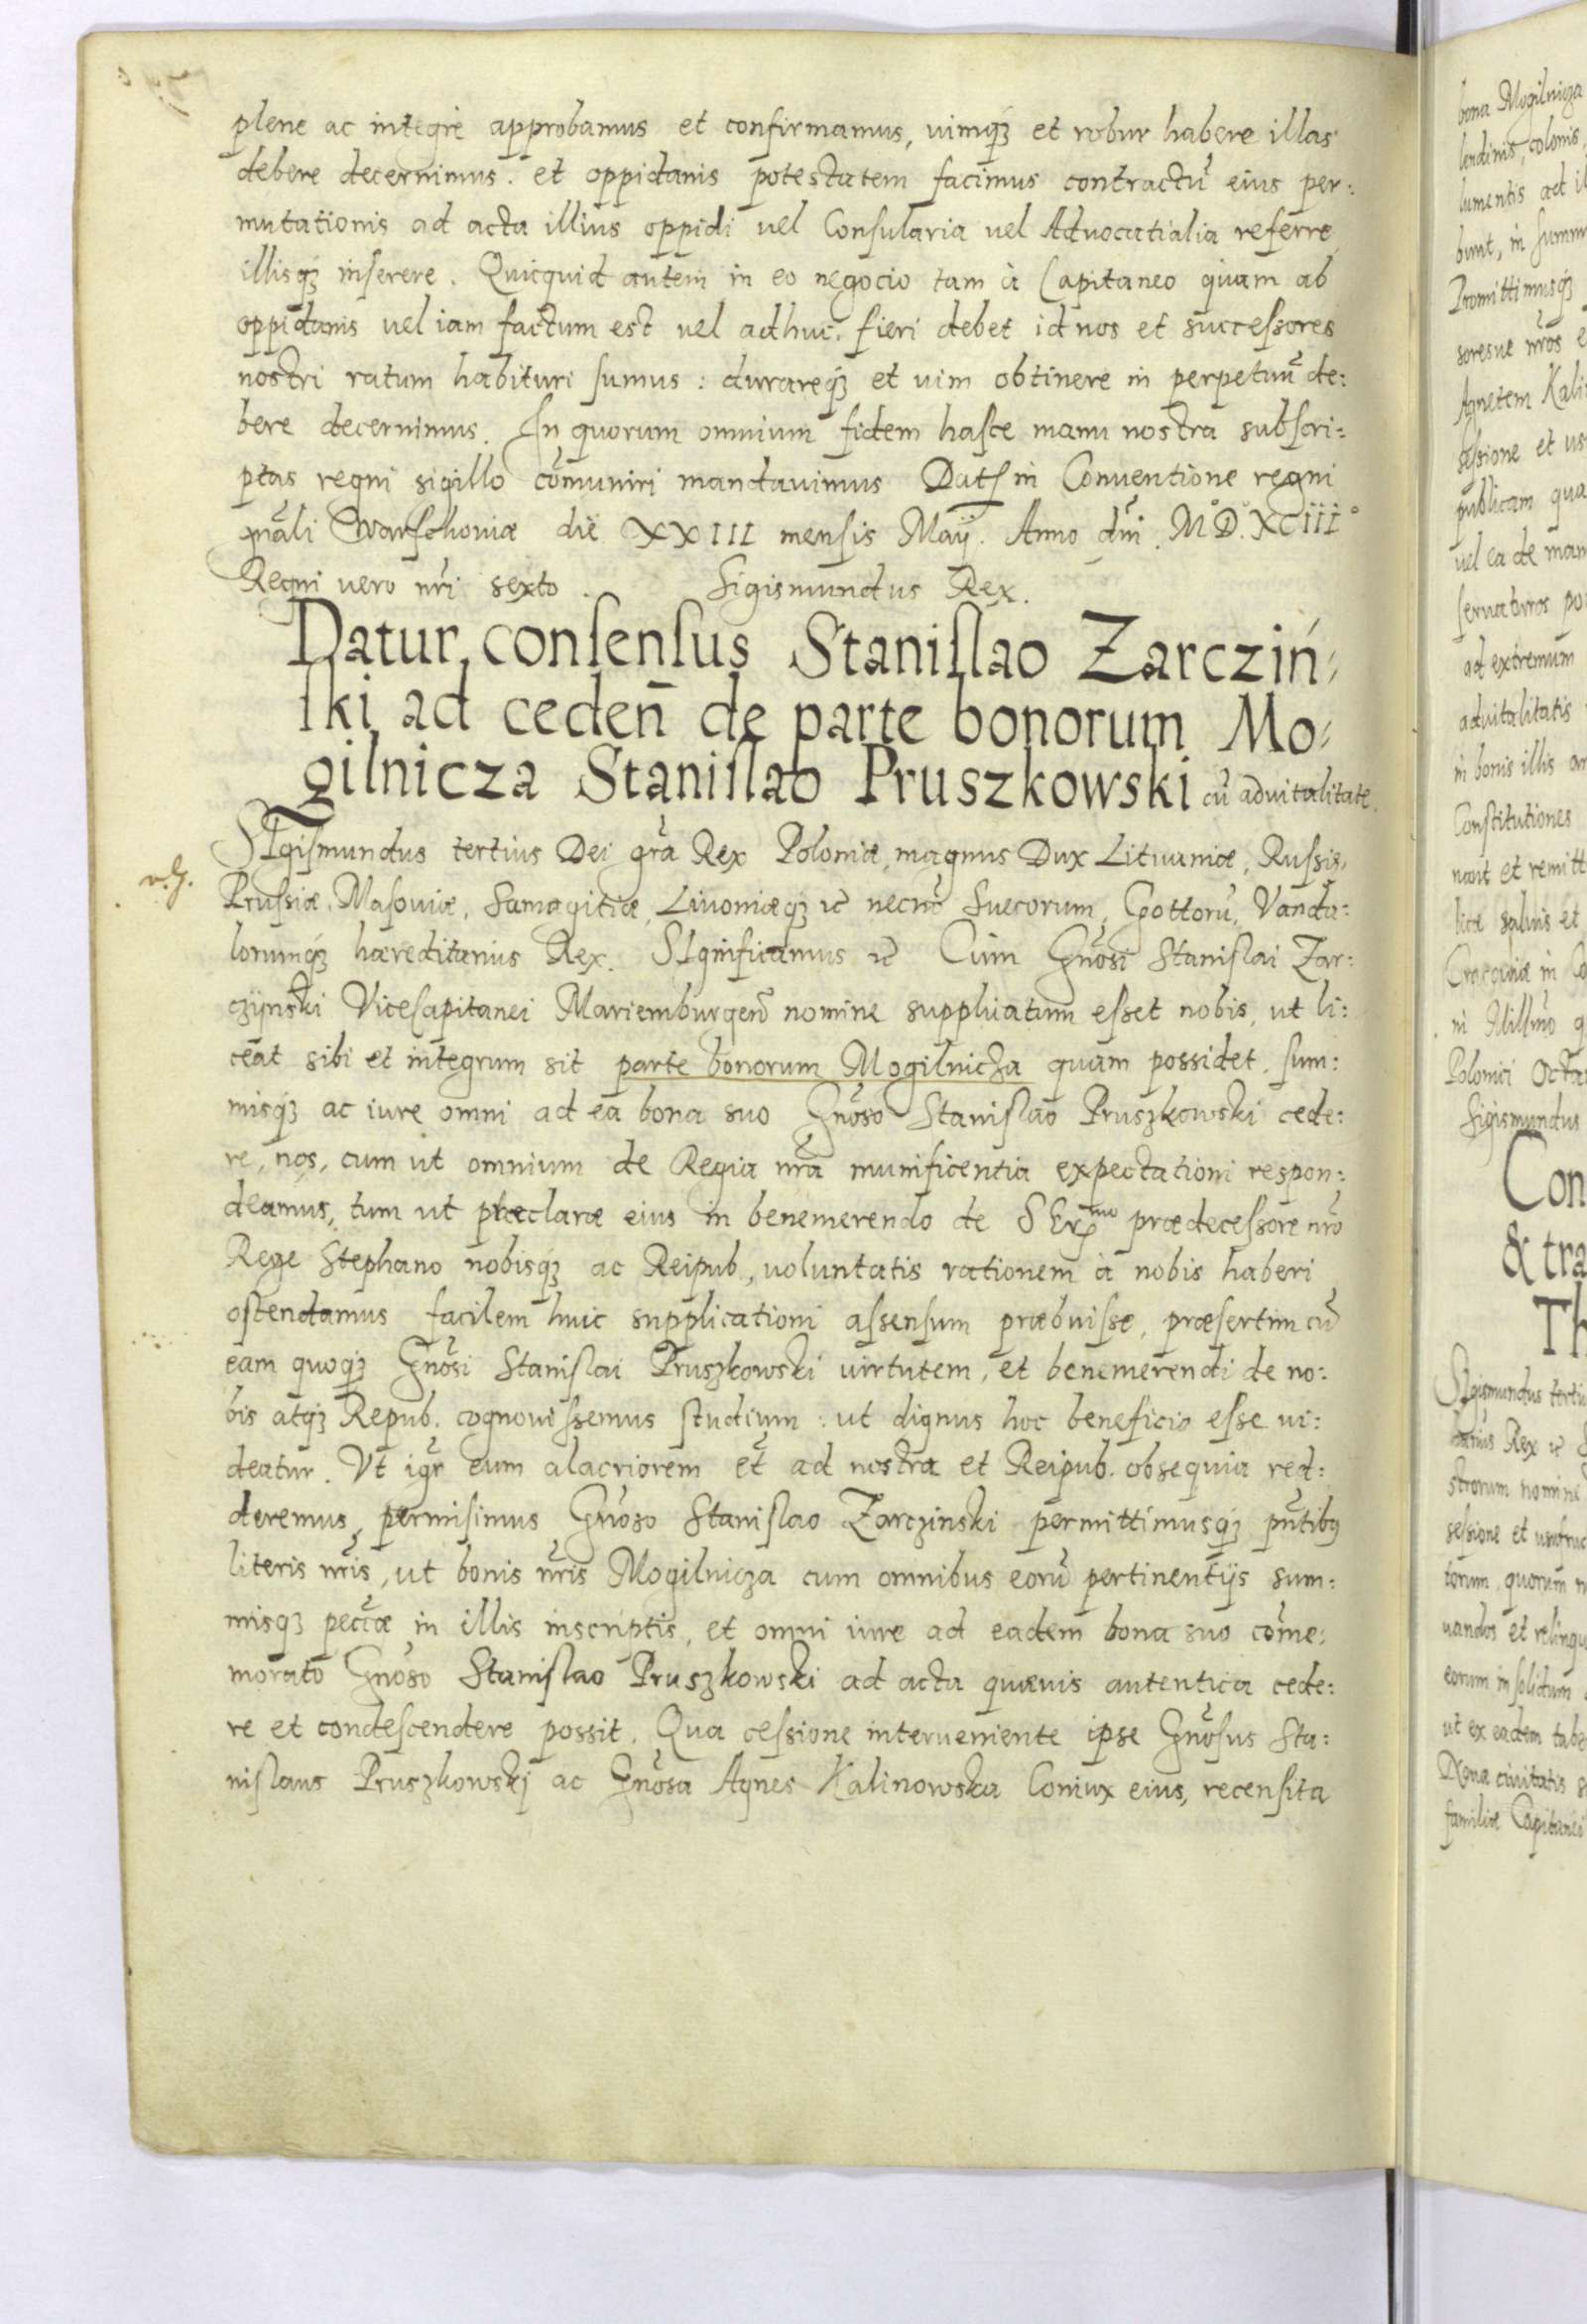 plene ac integrè approbamus et confirmamus, uimq́ꝫ et robur habere illas
debere decernimus. et oppidanis potestatem facimus contractũ eius per:
mutationis ad acta illius oppidi uel Consularia uel Aduocatialia referre
illisq́ꝫ inserere. Quicquid autem in eo negocio tam à Capitaneo quàm ab
oppidanis uel iam factum est uel adhuc fieri debet id nos et successores
nostri ratum habituri sumus: durareq́ꝫ et uim obtinere in perpetuũ de:
bere decernimus. In quorum omnium fidem hasce manu nostra subscri:
ptas regni sigillo cõmuniri mandauimus Datꝭ in Conuentione regni
gnãli Warschouiæ die XXIII mensis Maij. Anno dñi. M.D.XCIII
Regni uero nr̃i sexto. Sigismundus Rex.
Datur consensus Stanislao Zarcziń:
ski ad cedeñ de parte bonorum Mo:
gilnicza Stanislao Pruszkowski cũ aduitalitate.
SIgismundus tertius Dei gr̃a Rex Poloniæ, magnus Dux Lituaniæ, Russiæ,
Prussiæ, Masouiæ, Samogitiæ, Liuoniæq́ꝫ ꝛc necnõ Suecorum, Gottorũ, Vanda:
lorumq́ꝫ hæreditarius Rex. SIgnificamus ꝛc Cum Gñosi Stanislai Zar:
czijnski Vicecapitanei Mariemburgeñ nomine supplicatum esset nobis, ut li:
ceat sibi et integrum sit parte bonorum Mogilnicza quam possidet, sum:
misq́ꝫ ac iure omni ad ea bona suo Gñoso Stanislao Pruszkowski cede:
re, nos, cum ut omnium de Regia nr̃a munificentia expectationi respon:
deamus, tum ut præclaræ eius in benemerendo de SErmo prædecessore nr̃o
Rege Stephano nobisq́ꝫ ac Reipub, uoluntatis rationem à nobis haberi
ostendamus facilem huic supplicationi assensum præbuisse, præsertim cũ
eam quoq́ꝫ Gñosi Stanislai Pruszkowski uirtutem, et benemerendi de no:
bis atq́ꝫ Repub. cognouissemus studium: ut dignus hoc beneficio esse ui:
deatur. Vt igr̃ eum alacriorem et ad nostra et Reipub. obsequia red:
deremus, permisimus Gñoso Stanislao Zarczinski permittimusq́ꝫ pñtibꝰ
literis nr̃is, ut bonis nr̃is Mogilnicza cum omnibus eorũ pertinentijs sum:
misqꝫ pecc̃æ in illis inscriptis, et omni iure ad eadem bona suo cõme:
morato Gñoso Stanislao Pruszkowski ad acta quæuis autentica cede:
re et condescendere possit. Qua cessione interueniente ipse Gñosus Sta:
nislaus Pruszkowski ac Gñosa Agnes Kalinowska Coniux eius, recensita
bona Mogilnicza
colonis,
lumentis ad
bunt, in
Promittimusq́ꝫ
soresue nr̃os
Agnetem
sessione et
publicam
uel ea de
seruaturos
ad extremum
aduitalitatis
in bonis illis
Constitutiones
saluis et
Cracouiæ in
in Millmo
Poloniæ
Sigismundus
Con
& tra
Th
SIgismundus
Rex ꝛc
strorum
sessione et
quorum
uandos et
eorum in solidum
ut ex eadem
ciuitatis
familiæ